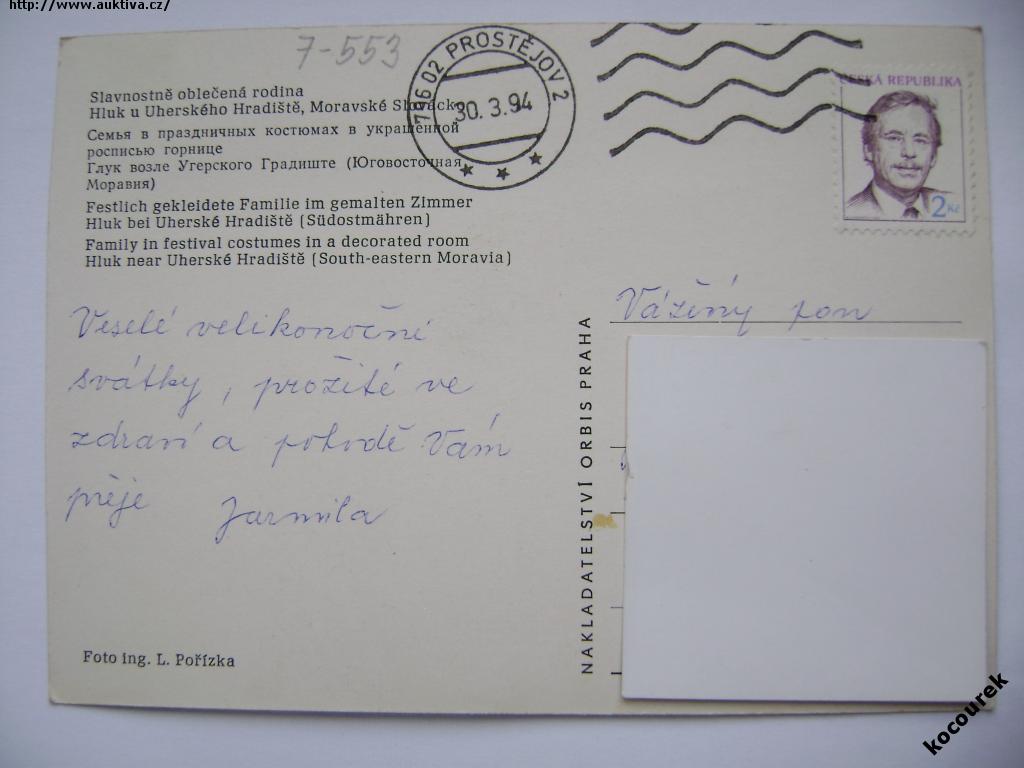 http://www.auktiva.cz/
7-553
796 02 PROSTĚJOV 2
30.3.94
ČESKÁ REPUBLIKA
2 Kč
Slavnostně oblečená rodina
Hluk u Uherského Hradiště, Moravské Slovácko
Семья в праздничных костюмах в украшенной
росписью горнице
Глук возле Угерского Градиште (Юговосточная
Моравия)
Festlich gekleidete Familie im gemalten Zimmer
Hluk bei Uherské Hradiště (Südostmähren)
Family in festival costumes in a decorated room
Hluk near Uherské Hradiště (South-eastern Moravia)
Veselé velikonoční
svátky, prožité ve
zdraví a pohodě Vám
přeje Jarmila
Foto ing. L. Pořízka
NAKLADATELSTVÍ ORBIS PRAHA
Vážený pan
kocourek